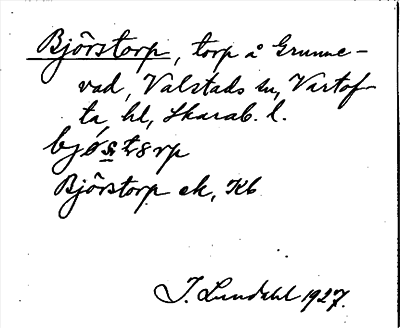 Björstorp, torp å Grunne-
vad, Valstads sn, Vartof-
ta hd, Skarab. l.
Björstorp ek, Kb
J. Lundahl 1927.